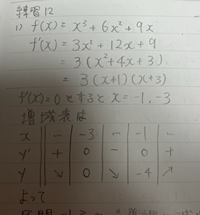 練習12
1) f(x) = x³ + 6x² + 9x
f'(x) = 3x² + 12x + 9
= 3(x² + 4x + 3)
= 3(x+1)(x+3)
f'(x)=0 とすると x = -1, -3
増減表は
x | … | -3 | … | -1 | …
y' | + | 0 | − | 0 | +
y | | 0 | ↘ | -4 | ↗
よって